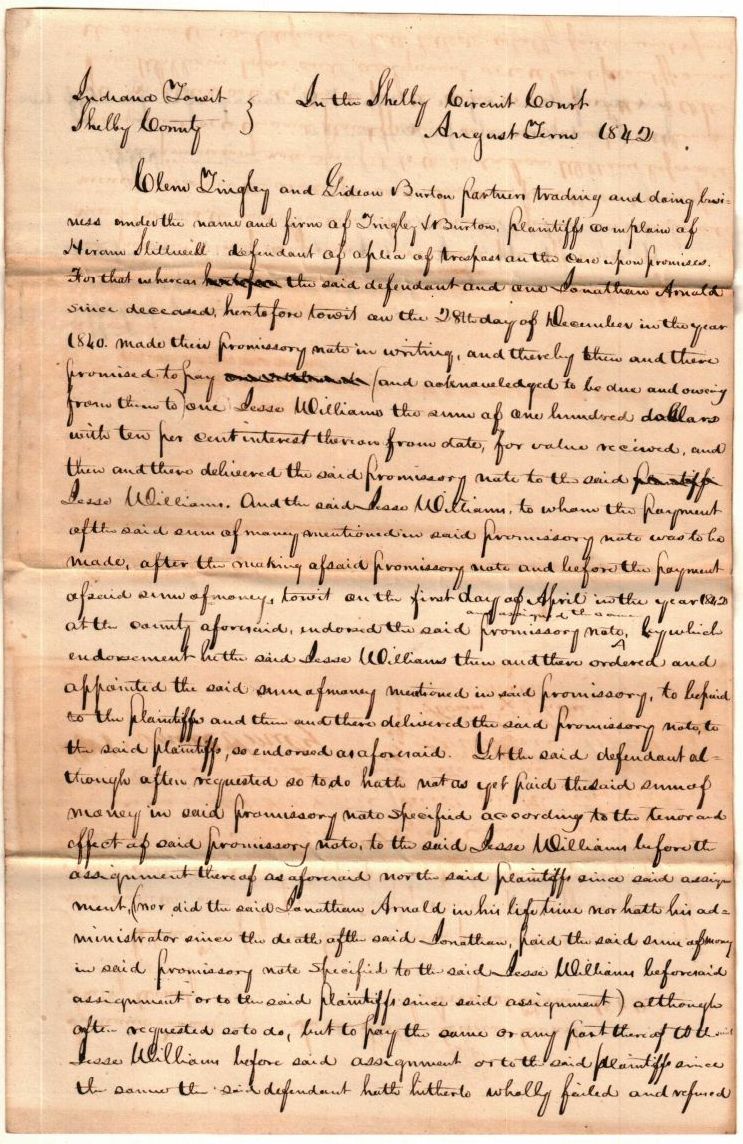 Indiana Towit } In the Shelby Circuit Court
Shelby County August Term 1842
Clem Tingley and Gideon Burton partners trading and doing busi-
ness under the name and firm of Tingley & Burton, plaintiffs complain of
Hiram Stillwell defendant of a plea of trespass on the case upon promises.
For that whereas heretofore the said defendant and one Jonathan Arnold
since deceased, heretofore towit on the 28th day of December in the year
1840. made their promissory note in writing, and thereby then and there
promised to pay (and acknowledged to be due and owing
from them to) one Jesse Williams the sum of one hundred dollars
with ten per cent interest thereon from date, for value received, and
then and there delivered the said promissory note to the said plaintiffs
Jesse Williams. And the said Jesse Williams, to whom the payment
of the said sum of money mentioned in said promissory note was to be
made, after the making of said promissory note and before the payment
of said sum of money, towit on the first day of April in the year 1842
and assigned the same
at the county aforesaid, endorsed the said promissory note, ^ by which
endorsement he the said Jesse Williams then and there ordered and
appointed the said sum of money mentioned in said promissory, to be paid
to the plaintiffs and then and there delivered the said promissory note, to
the said plaintiffs, so endorsed as aforesaid. Yet the said defendant al=
though often requested so to do hath not as yet paid the said sum of
money in said promissory note specified according to the tenor and
effect of said promissory note, to the said Jesse Williams before the
assignment thereof as aforesaid nor the said plaintiffs since said assign
ment, (nor did the said Jonathan Arnold in his lifetime nor hath his ad=
ministrator since the death of the said Jonathan, paid the said sum of money
in said promissory note specified to the said Jesse Williams before said
assignment or to the said plaintiffs since said assignment) although
often requested so to do, but to pay the same or any part thereof to the said
Jesse Williams before said assignment or to the said plaintiffs since
the same the said defendant hath hitherto wholly failed and refused